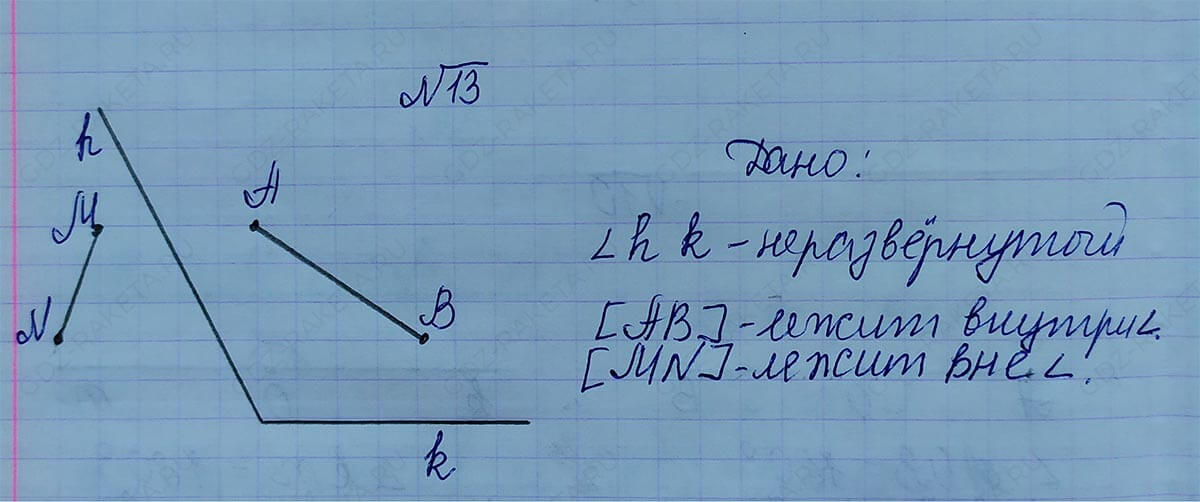 №13
h
M
A
N
B
k
Дано:
∠h k - неразвёрнутый
[AB] - лежит внутри∠.
[MN] - лежит вне ∠.
GDZ-RAKETA.RU